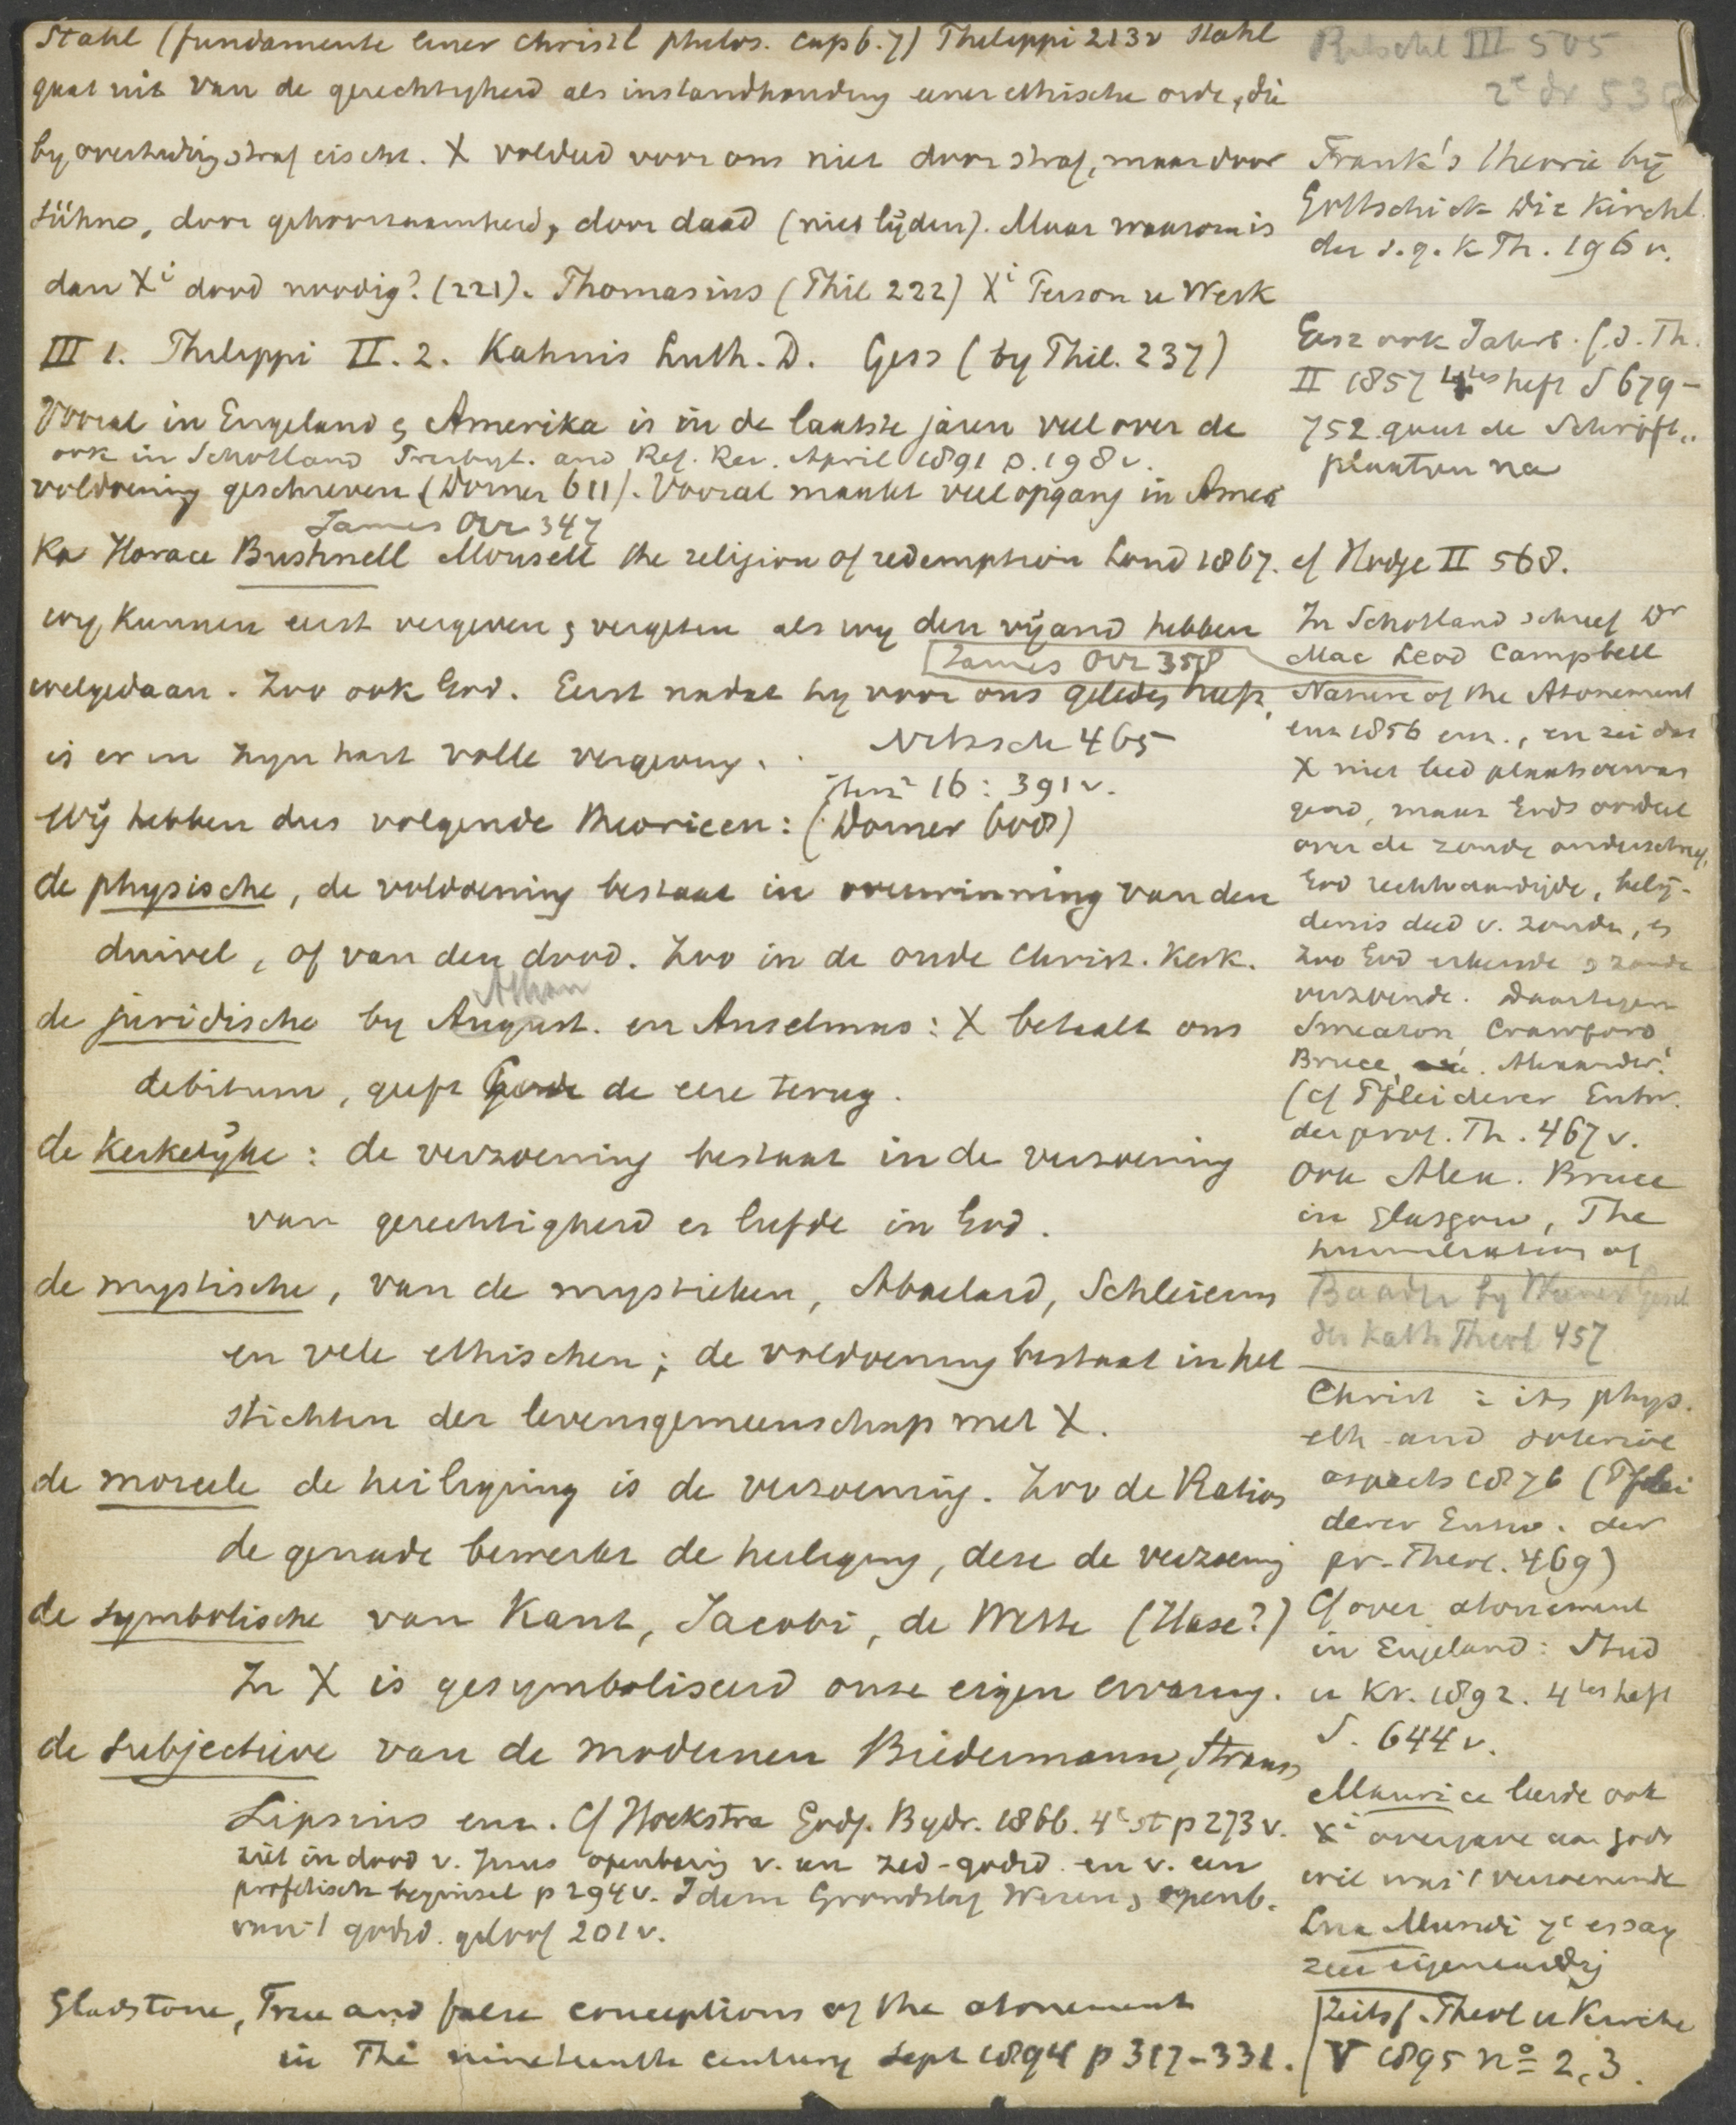 Stahl (fundamente einer christl philos. cap 6.7) Philippi 213v Stahl
gaat uit van de gerechtigheid als instandhouding eener ethische orde, die
by overtreding straf eischt. X voldeed voor ons niet door straf, maar door
Sühne, door gehoorzaamheid, door daad (niet lijden). Maar waarom is
dan Xi dood noodig? (221). Thomasius (Phil 222) Xi Person u Werk
III 1. Philippi IV. 2. Kahnis Luth. D. Gess (by Phil. 237)
Vooral in Engeland & Amerika is in de laatste jaren veel over de
ook in Schotland Presbyt. and Ref. Rev. April 1891 p. 198v.
voldoening geschreven (Dorner 611). Vooral maakt veel opgang in Ameri
James Orr 347
ka Horace Bushnell Monsell the religion of redemption Lond 1867. cf Hodge II 568.
wy kunnen eerst vergeven & vergeten als wy den vijand hebben
James Orr 358
welgedaan. Zoo ook God. Eerst nadat hy voor ons geleden heeft,
is er in zyn hart volle vergeving.
Nitzsch 465
16: 391v.
Wij hebben dus volgende theorieen: (Dorner 608)
de physische, de voldoening bestaat in overwinning van den
duivel, of van den dood. Zoo in de oude Christ. Kerk.
Athan
de juridische by August. en Anselmus: X betaalt ons
debitum, geeft Gode de eere terug.
de kerkelijke: de verzoening bestaat in de verzoening
van gerechtigheid en liefde in God.
de mystische, van de mystieken, Abaelard, Schleierm
en vele ethischen; de voldoening bestaat in het
stichten der levensgemeenschap met X.
de moreele de heiliging is de verzoening. Zoo de Ration
de genade bewerkt de heiliging, deze de verzoening
de symbolische van Kant, Jacobi, de Wette (Hase?)
In X is gesymboliseerd onze eigen ervaring.
de subjectieve van de modernen Biedermann, Strauss
Lipsius enz. Cf Hoekstra Godg. Bydr. 1866. 4e st p 273v.
ziet in dood v. Jezus openbaring v. een zed-godsd. en v. een
profetisch beginsel p 294v. Idem Grondslag Wezen & openb.
van 't godsd. geloof 201v.
Gladstone, True and false conceptions of the atonement
in The nineteenth century Sept 1894 p 317-331.
Ritschl III 505
2e dr 53
Frank's theorie bij
Gottschick Die Kirchl.
der s.g. k Th. 196v.
Gesz ook Jahrb. f. d. Th.
II 1857 4tes heft S 679-
752 gaat de Schrift
plaatsen na
In Schotland schreef Dr
Mac Leod Campbell
Nature of the Atonement
enz 1856 enz., en zei dat
X niet leed plaatsvervan
gend, maar Gods oordeel
over de zonde onderschreef,
God rechtvaardigde, belij-
denis deed v. zonde, en
zoo God erkende & zonde
verzoende. Daartegen
Smeaton, Crawford,
Bruce, Alexander.
(cf Pfleiderer Entw.
der prot. Th. 467v.
Ook Alex. Bruce
in Glasgow, The
humiliation of
Baader by Werner Gesch
der Kath Theol 457
Christ : its phys.
eth and soterive
aspects 1876 (Pflei
derer Entw. der
pr. Theol. 469)
Cf over atonement
in Engeland: Stud
u Kr. 1892. 4tes heft
S. 644v.
Maurice leerde ook
Xi overgave aan gods
wil was 't verzoenende
Lux Mundi 7e essay
zeer eigenaardig
Zeits f. Theol u Kirche
V 1895 no 2, 3.